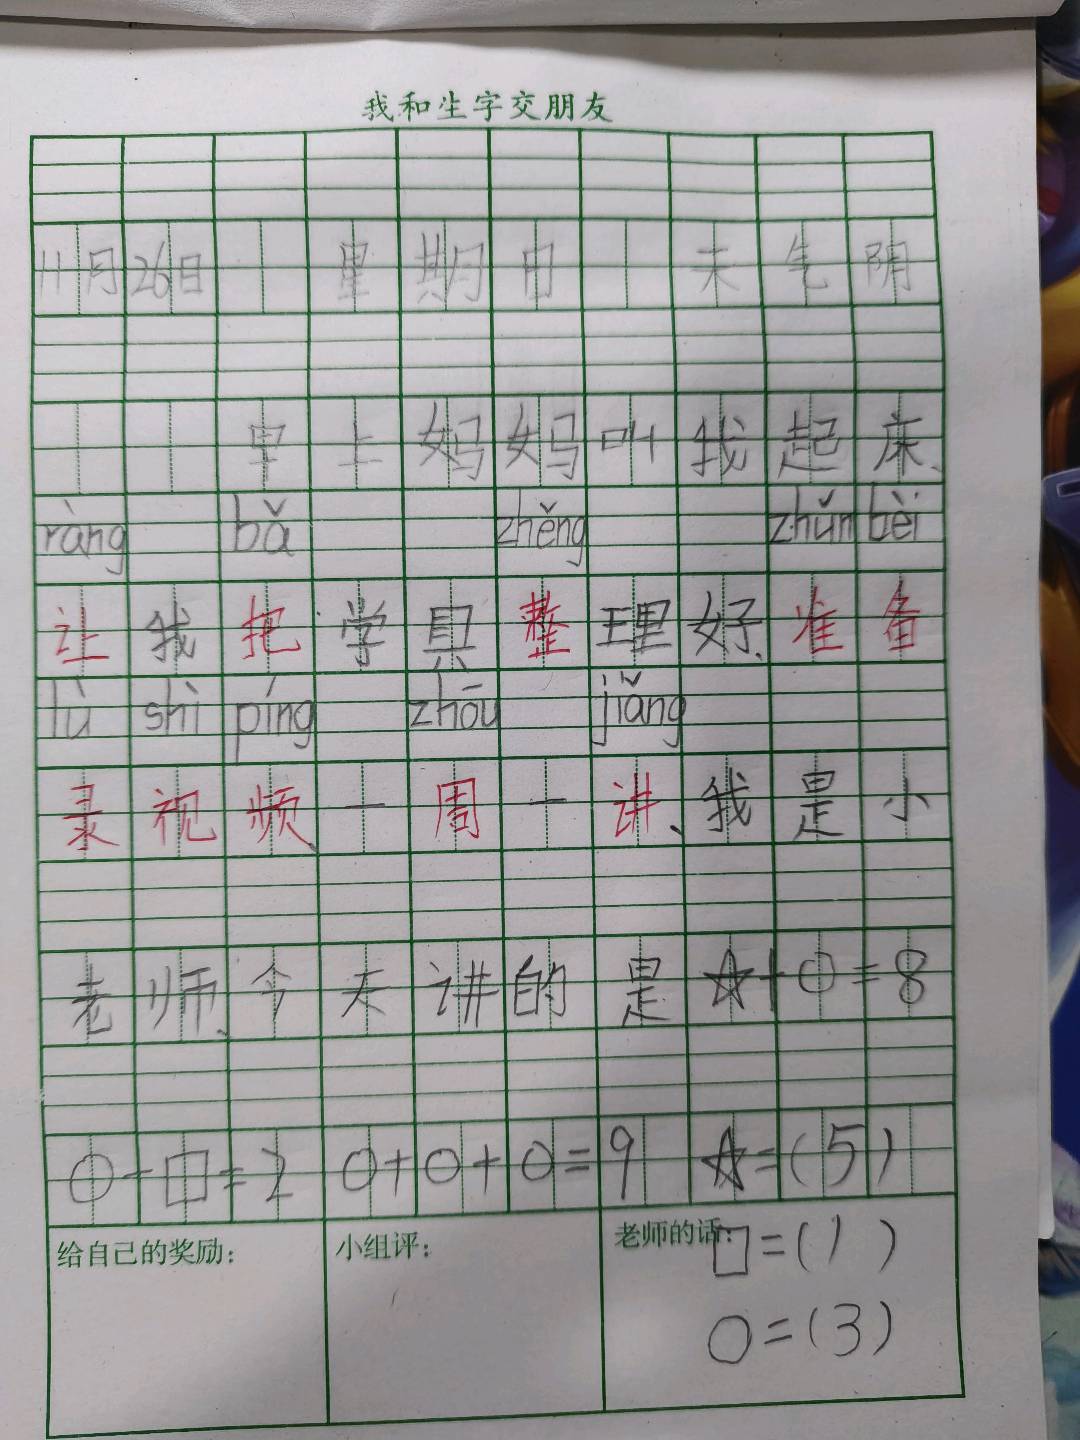 我和生字交朋友
11月26日 星期日 天气阴
早上妈妈叫我起床、
ràng bǎ zhěng zhǔn bèi
让我把学具整理好、准备
lù shì píng zhōu jiǎng
录视频、一周一讲、我是小
老师、今天讲的是☆+○=8
○-□=2 ○+○+○=9 ☆=(5)
给自己的奖励: 小组评: 老师的话:
□=(1)
○=(3)